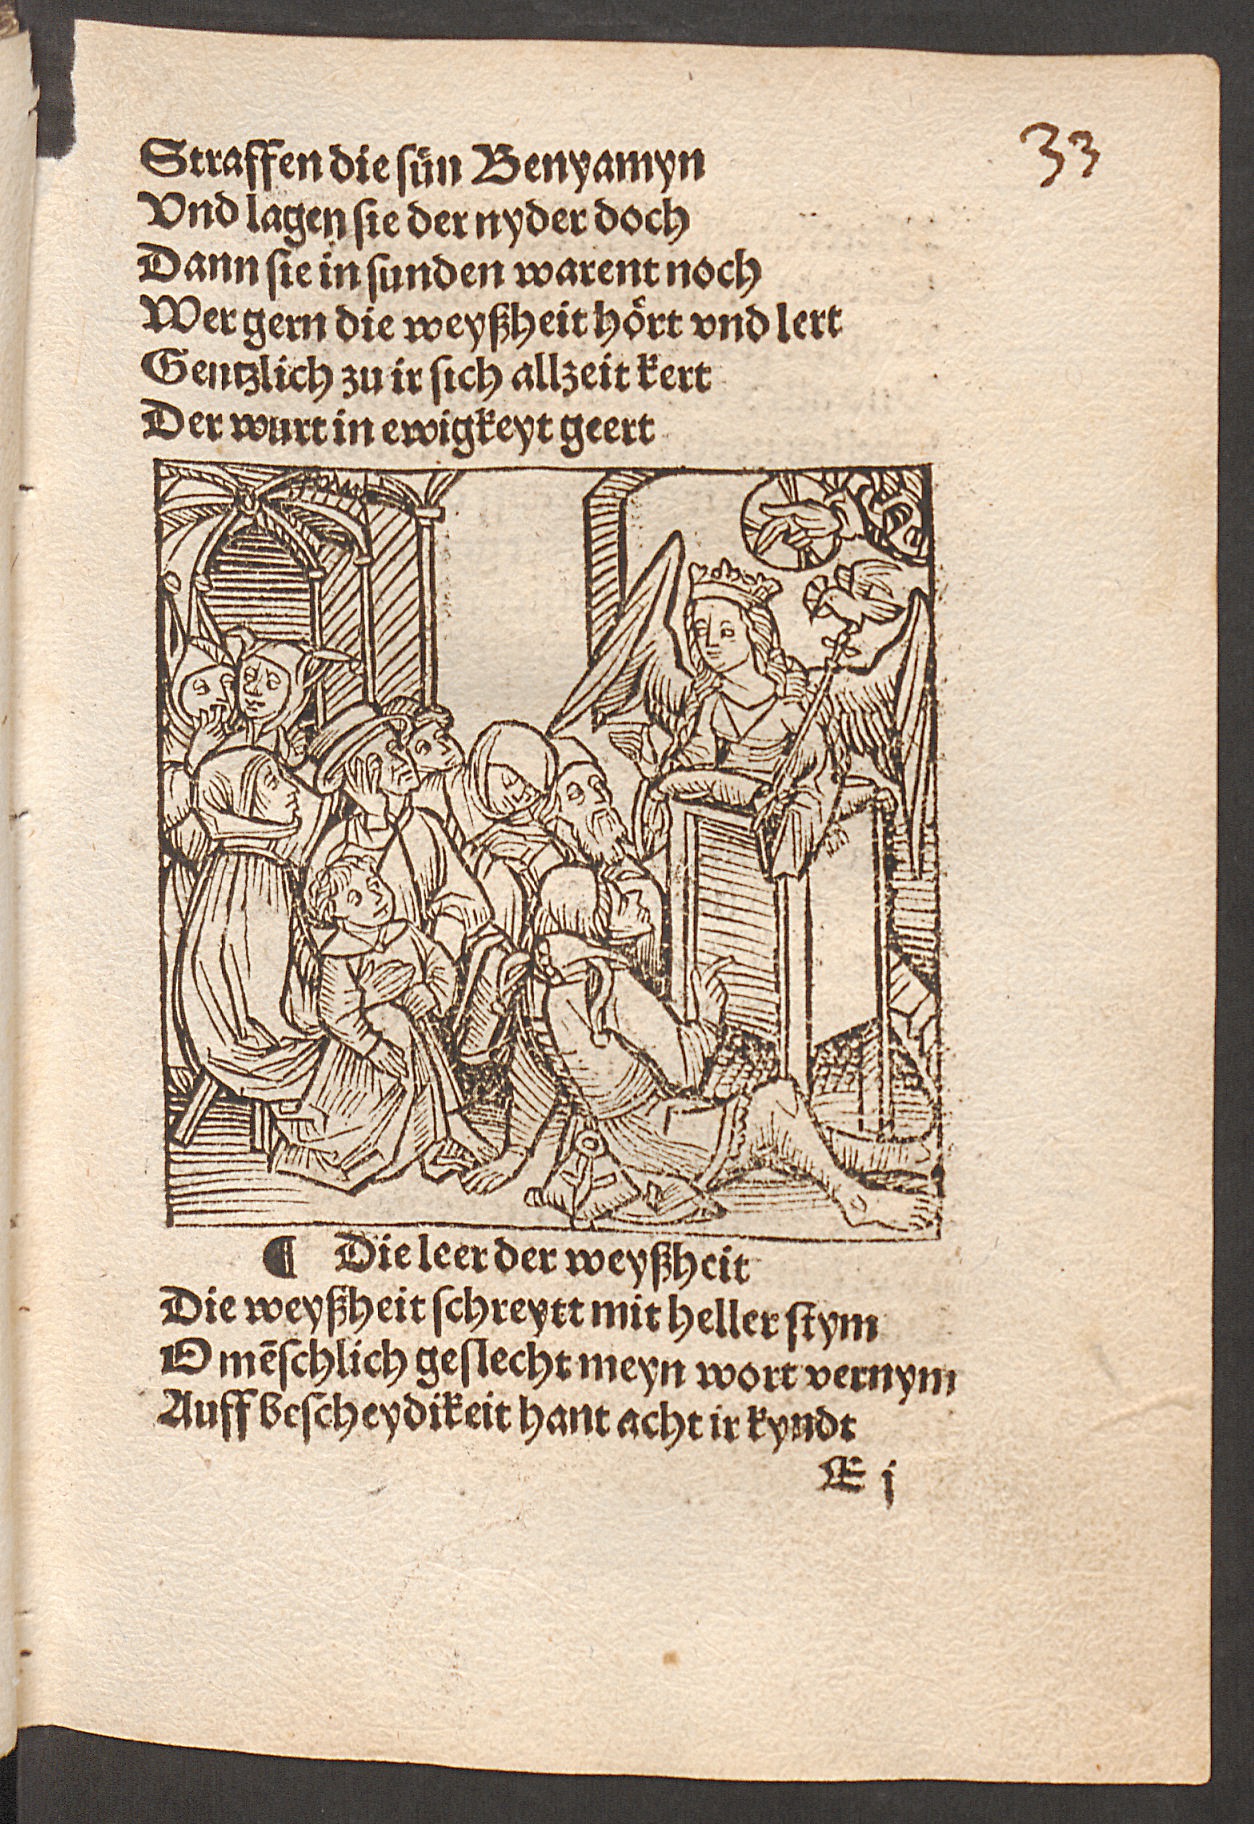 33
Straffen die sün Benyamyn
Vnd lagen sie der nyder doch
Dann sie in sunden warent noch
Wer gern die weyßheit hoͤrt vnd lert
Gentzlich zu ir sich allzeit kert
Der wurt in ewigkeyt geert
¶ Die leer der weyßheit
Die weyßheit schreytt mit heller stym
O mēschlich geslecht meyn wort vernym
Auff bescheydikeit hant acht ir kyndt
E j